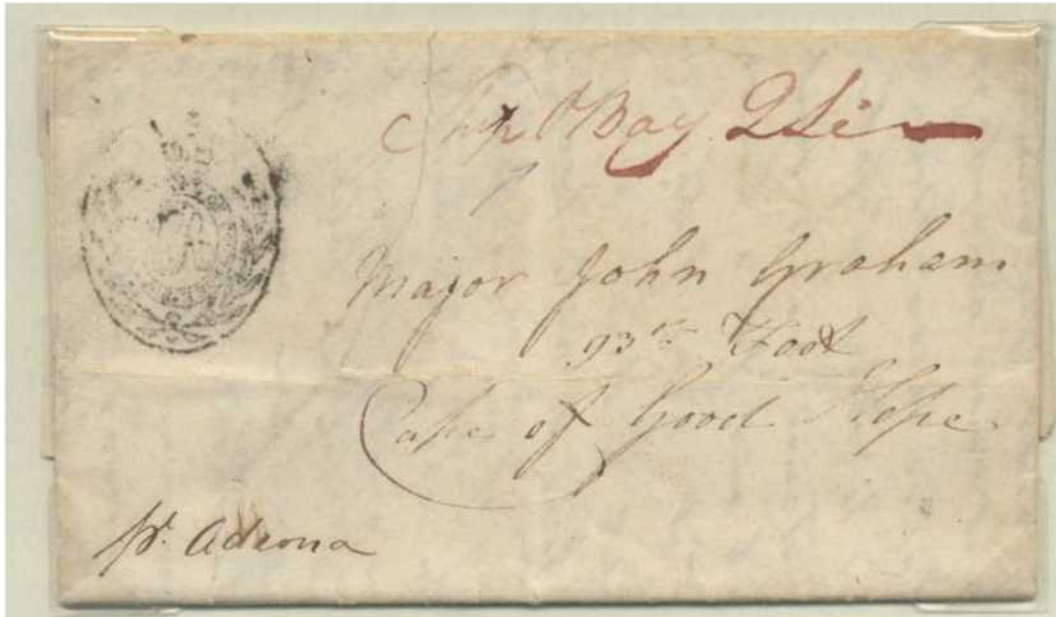 Ship Bay
Major John Graham
93rd Foot
Cape of Good Hope
pr. Adeona